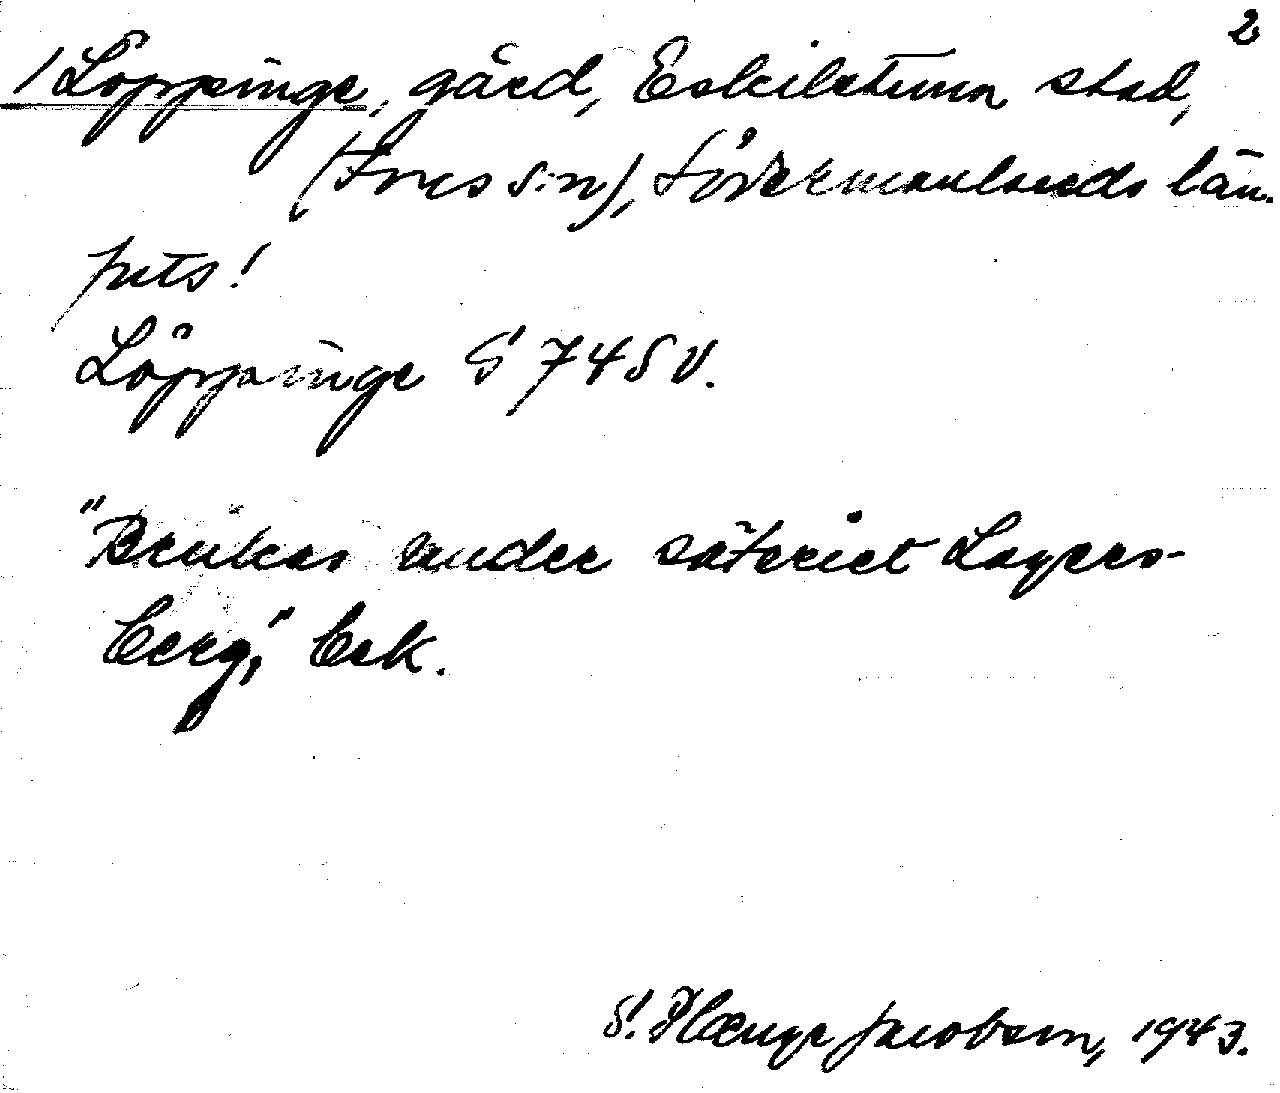 2
1 Löppinge, gård, Eskilstuna stad,
(Fors s:n), Södermanlands län.
puts!
Löppinge S 745 V.
"Brukas under säteriet Lagers-
berg", bek.
S. Hænge Jacobson, 1943.